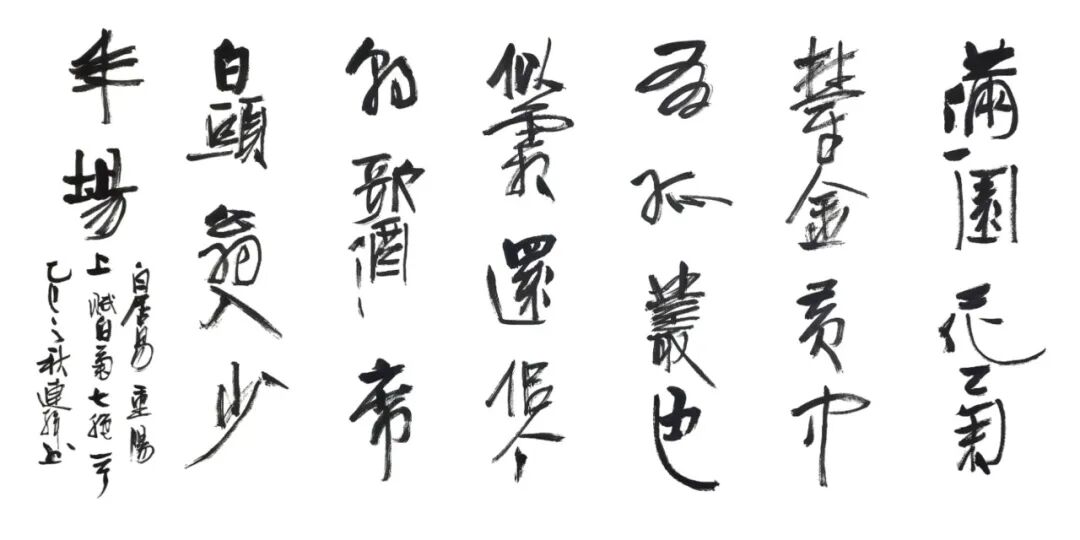 滿園花菊
欝金黄中
有孤叢色
似霜還似今
朝歌酒席
白頭翁入少
年場
白居易重陽
上賦白菊七絶
乙巳之秋連